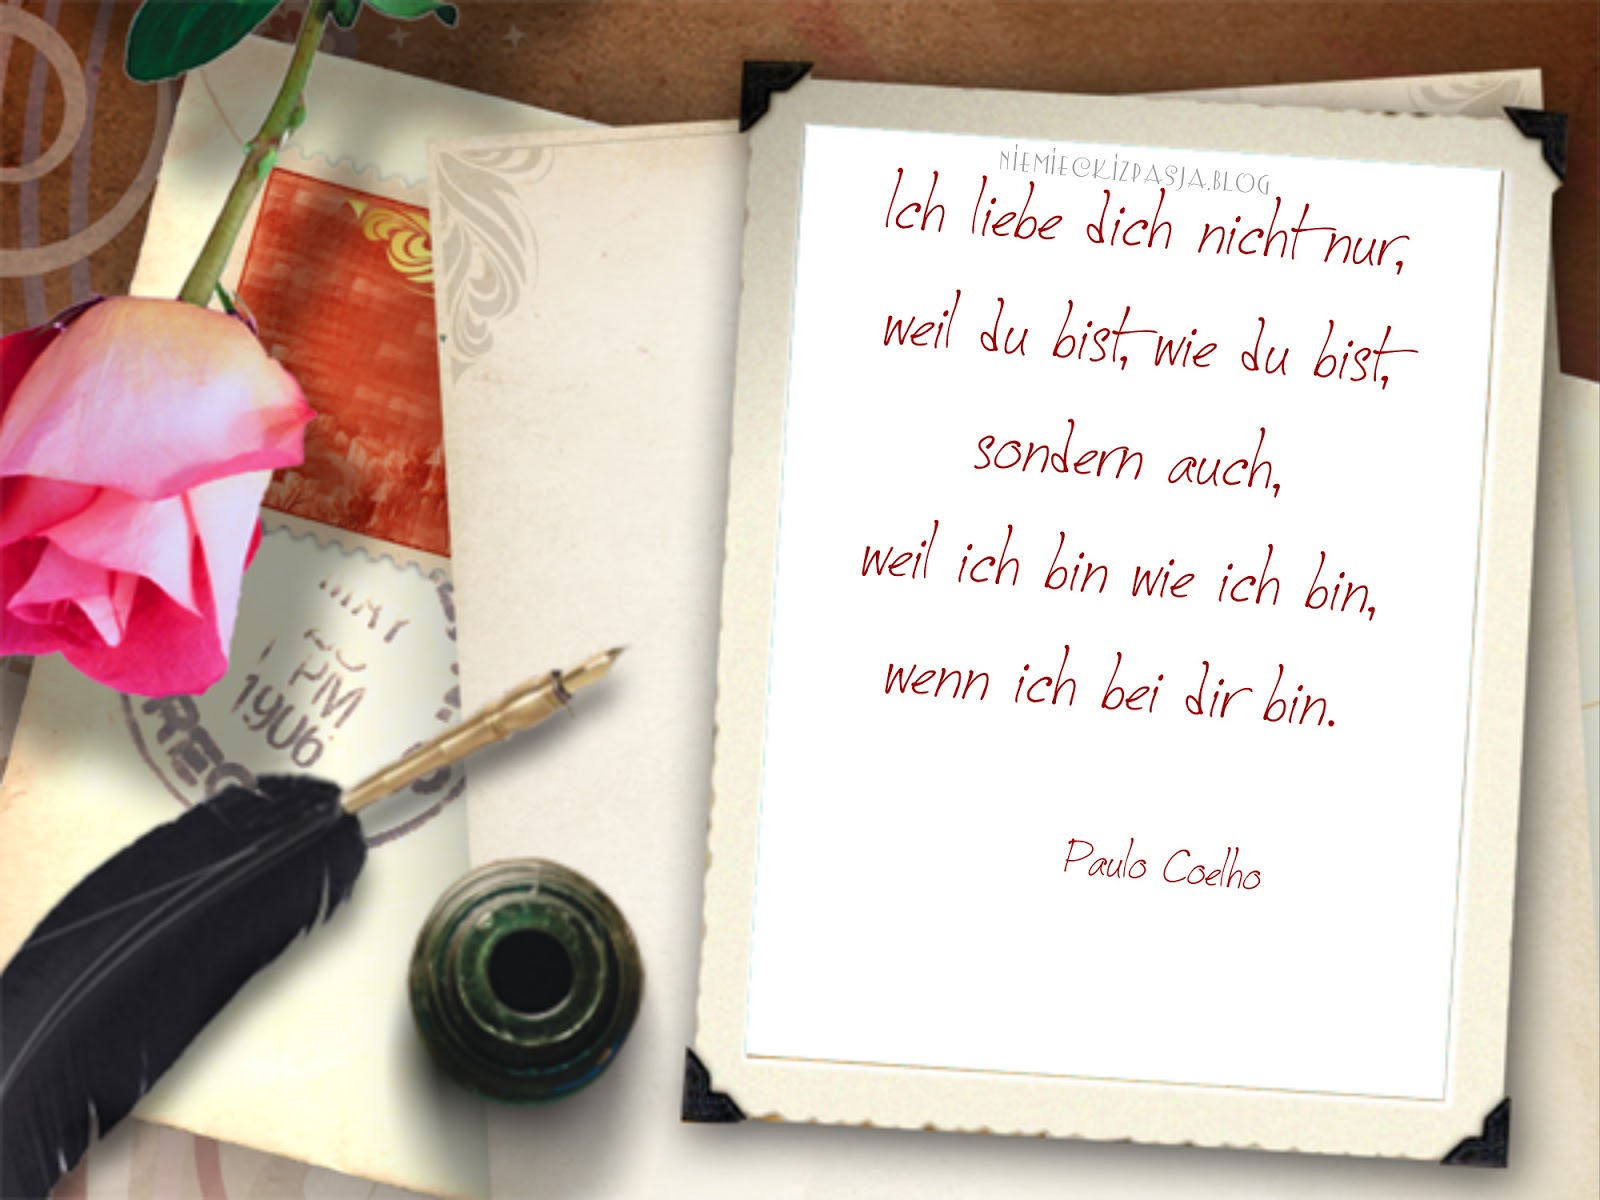 NIEMIECKIZPASJA.BLOG
Ich liebe dich nicht nur,
weil du bist, wie du bist,
sondern auch,
weil ich bin wie ich bin,
wenn ich bei dir bin.
Paulo Coelho
PM
1906
REG